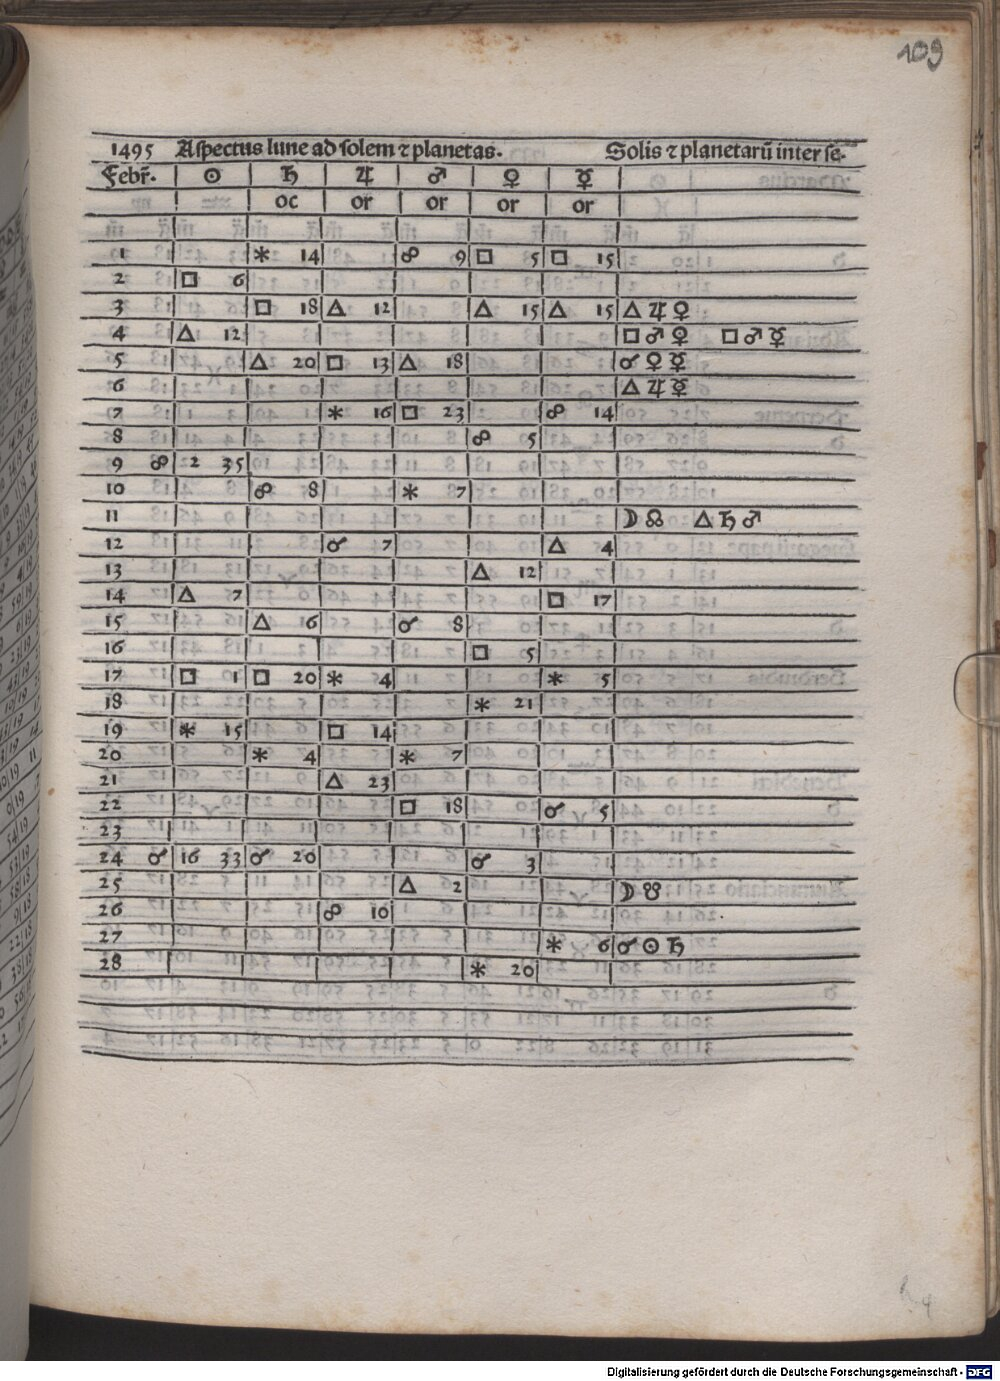 109
1495 Aſpectus lune ad ſolem ⁊ planetas. Solis ⁊ planetarū inter ſe.
Febr̄. ☉ ♄ ♃ ♂ ♀ ☿
oc or or or or
1 ⚹ 14 ☍ 9 □ 5 □ 15
2 □ 6
3 □ 18 △ 12 △ 15 △ 15 △ ♃ ♀
4 △ 12 □ ♂ ♀ □ ♂ ☿
5 △ 20 □ 13 △ 18 ☌ ♀ ☿
6 △ ♃ ☿
7 ⚹ 16 □ 23 ☍ 14
8 ☍ 5
9 ☍ 2 35
10 ☍ 8 ⚹ 7
11 ☽ ☊ △ ♄ ♂
12 ☌ 7 △ 4
13 △ 12
14 △ 7 □ 17
15 △ 6 ☌ 8
16 □ 5
17 □ 1 □ 20 ⚹ 4 ⚹ 5
18 ⚹ 21
19 ⚹ 15 □ 14
20 ⚹ 4 ⚹ 7
21 △ 23
22 □ 18 ☌ 5
23
24 ☌ 16 33 ☌ 20 ☌ 3
25 △ 2 ☽ ☋
26 ☍ 10
27 ⚹ 6 ☌ ☉ ♄
28 ⚹ 20
Digitalisierung gefördert durch die Deutsche Forschungsgemeinschaft - DFG